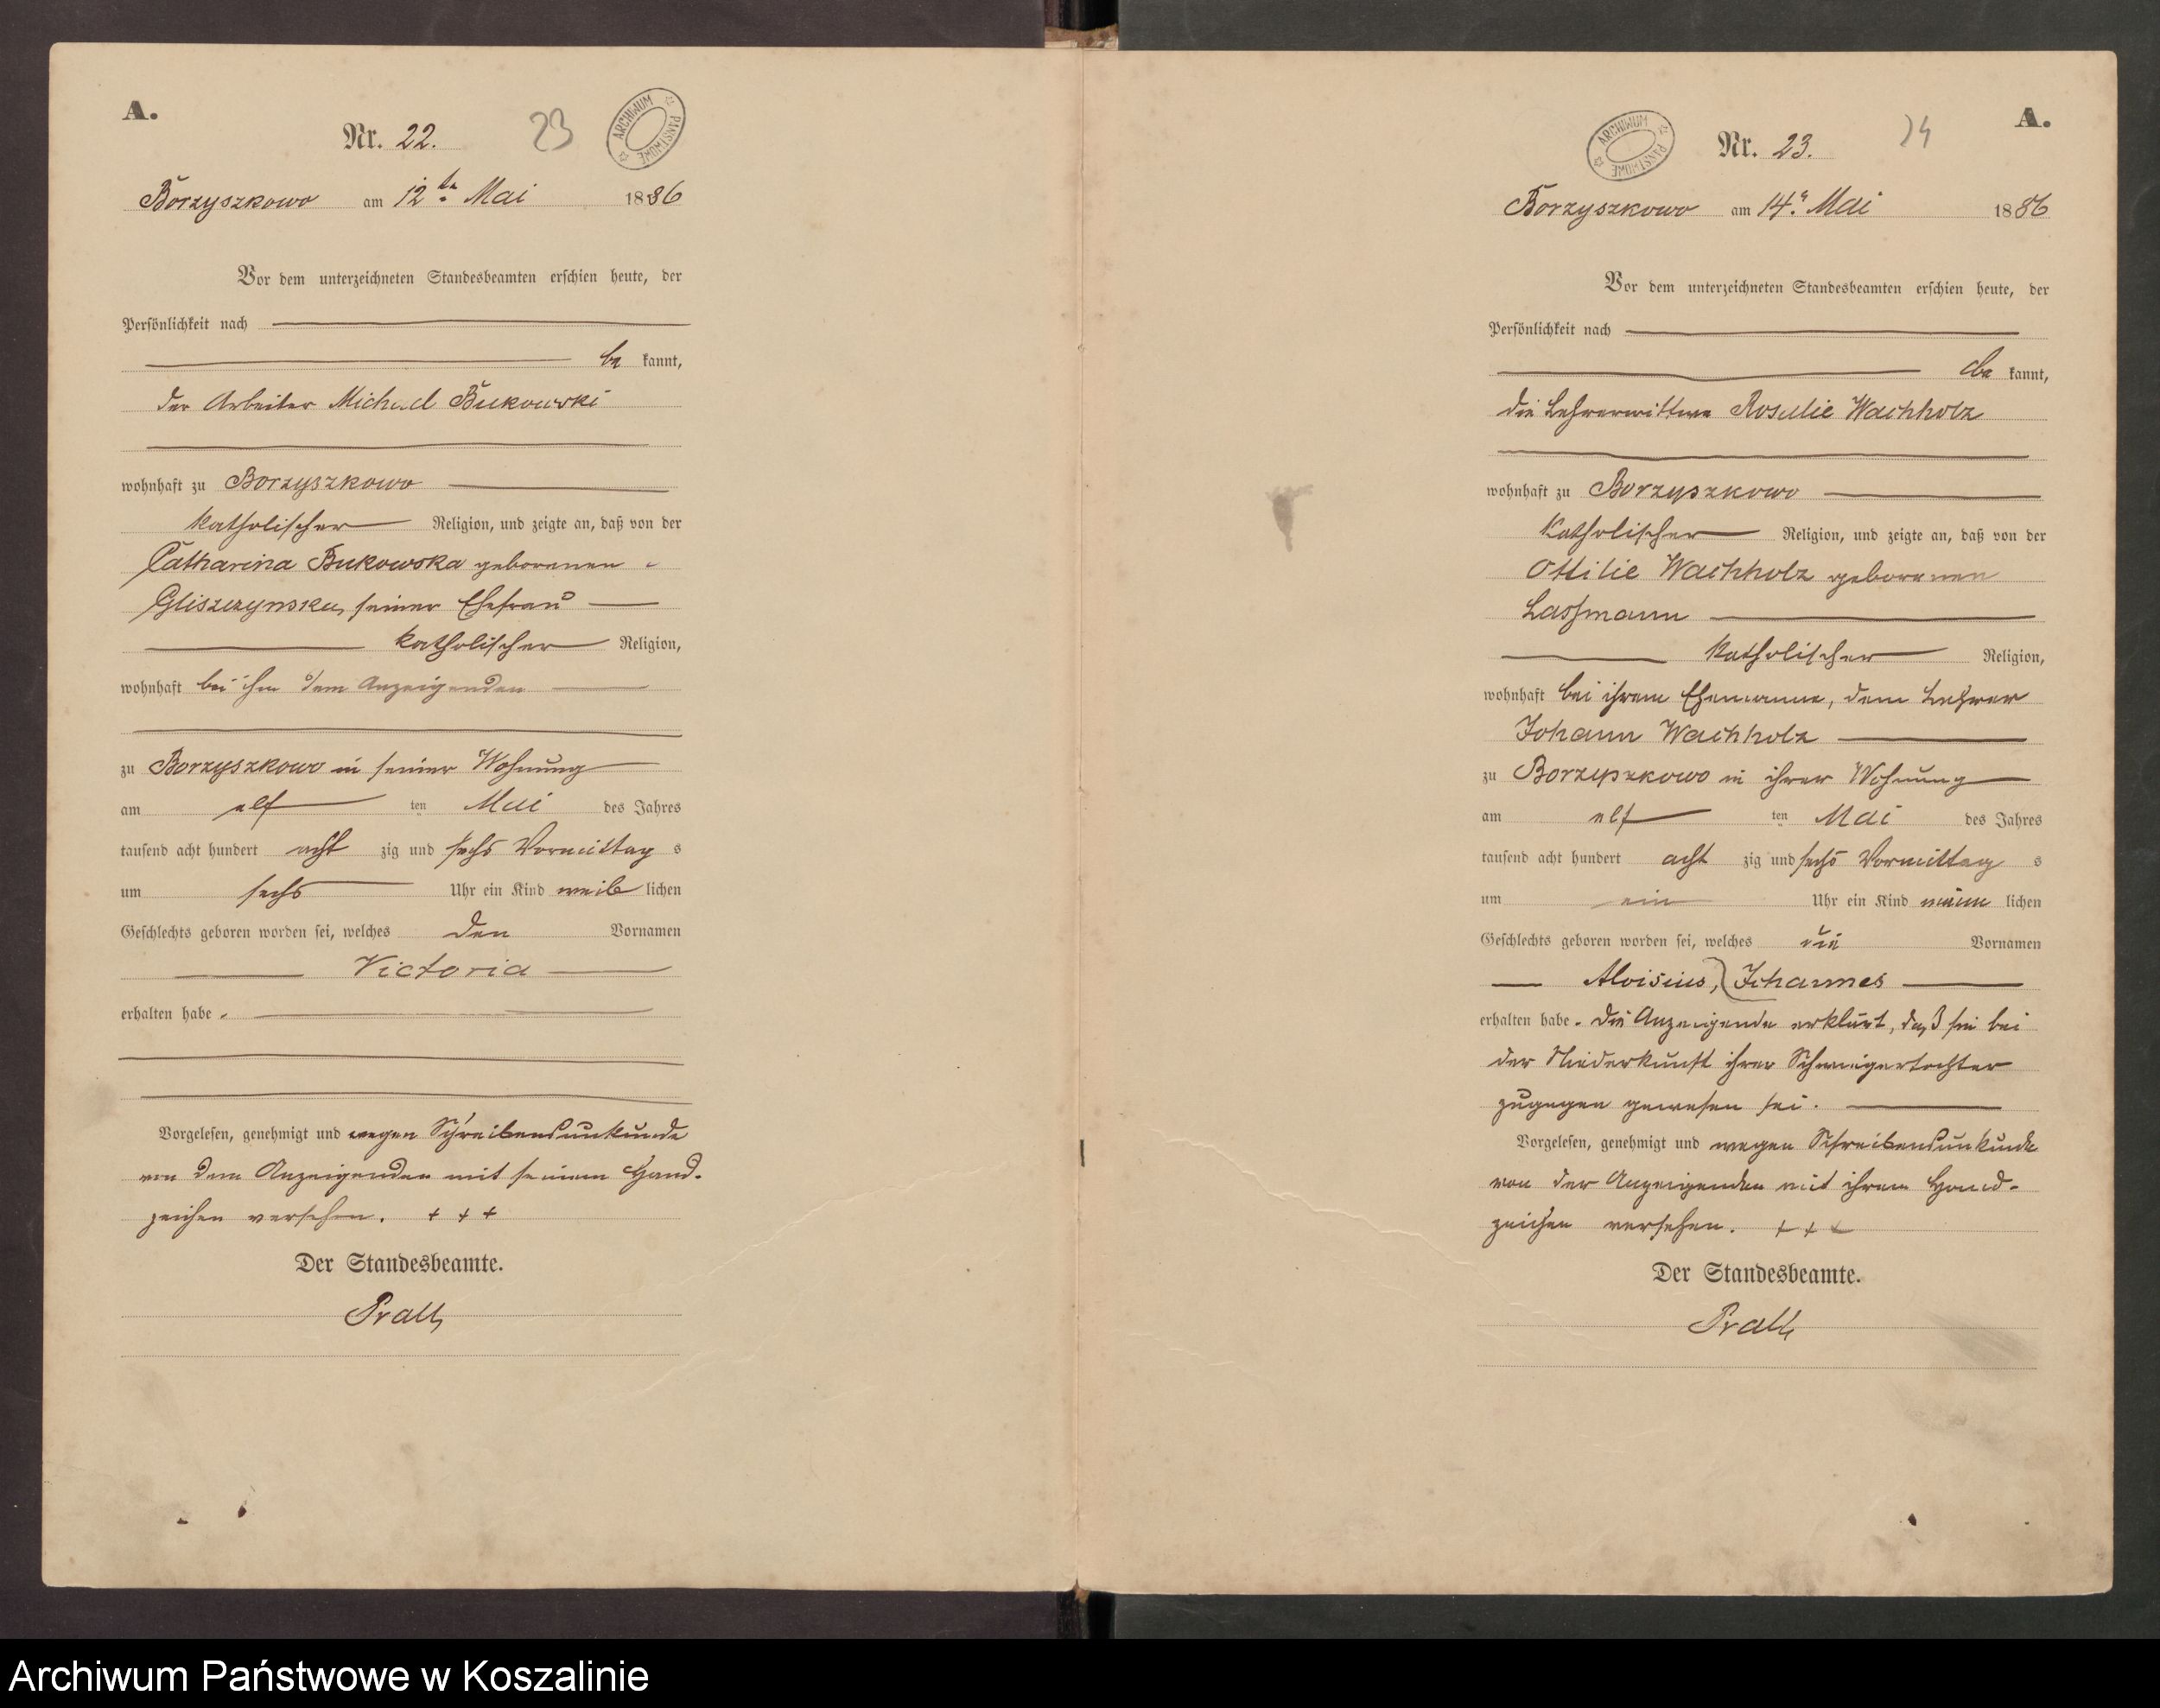 A.
Nr. 22.
23
ARCHIWUM PAŃSTWOWE
Borzyszkowo am 12ten Mai 1886
Vor dem unterzeichneten Standesbeamten erschien heute, der
Persönlichkeit nach
be kannt,
der Arbeiter Michael Bukowski
wohnhaft zu Borzyszkowo
katholischer Religion, und zeigte an, daß von der
Catharina Bukowska geborenen
Gliszczynska, seiner Ehefrau
katholischer Religion,
wohnhaft bei ihm dem Anzeigenden
zu Borzyszkowo in seiner Wohnung
am elf ten Mai des Jahres
tausend acht hundert acht zig und sechs Vormittag s
um sechs Uhr ein Kind weib lichen
Geschlechts geboren worden sei, welches den Vornamen
Victoria
erhalten habe.
Vorgelesen, genehmigt und wegen Schreibensunkunde
von dem Anzeigenden mit seinem Hand-
zeichen versehen. + + +
Der Standesbeamte.
A.
ARCHIWUM PAŃSTWOWE
Nr. 23.
24
Borzyszkowo am 14. Mai 1886
Vor dem unterzeichneten Standesbeamten erschien heute, der
Persönlichkeit nach
be kannt,
die Lehrerwittwe Rosalie Wachholz
wohnhaft zu Borzyszkowo
katholischer Religion, und zeigte an, daß von der
Ottilie Wachholz geborenen
Lassmann
katholischer Religion,
wohnhaft bei ihrem Ehemanne, dem Lehrer
Johann Wachholz
zu Borzyszkowo in ihrer Wohnung
am elf ten Mai des Jahres
tausend acht hundert acht zig und sechs Vormittag s
um ein Uhr ein Kind männ lichen
Geschlechts geboren worden sei, welches die Vornamen
Aloisius, Johannes
erhalten habe. Die Anzeigende erklärt, daß sie bei
der Niederkunft ihrer Schwiegertochter
zugegen gewesen sei.
Vorgelesen, genehmigt und wegen Schreibensunkunde
von der Anzeigenden mit ihrem Hand-
zeichen versehen. + + +
Der Standesbeamte.
Archiwum Państwowe w Koszalinie